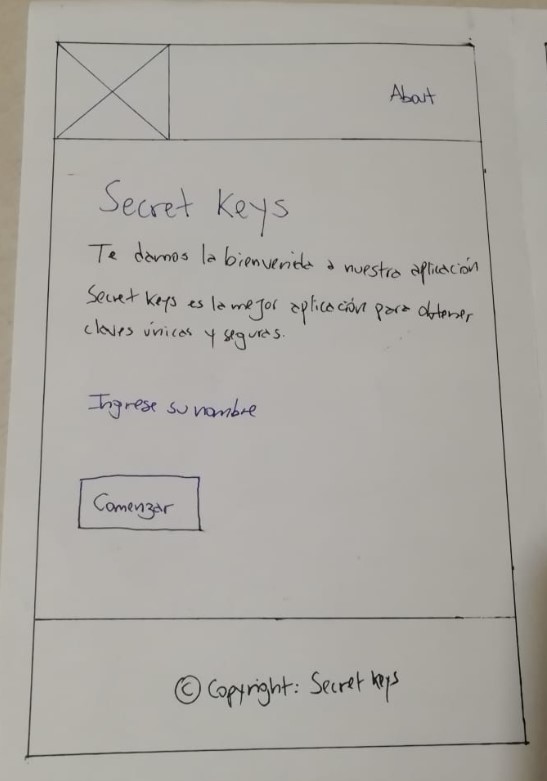 About
Secret Keys
Te damos la bienvenida a nuestra aplicación
Secret Keys es la mejor aplicación para obtener
claves únicas y seguras.
Ingrese su nombre
Comenzar
© Copyright: Secret keys